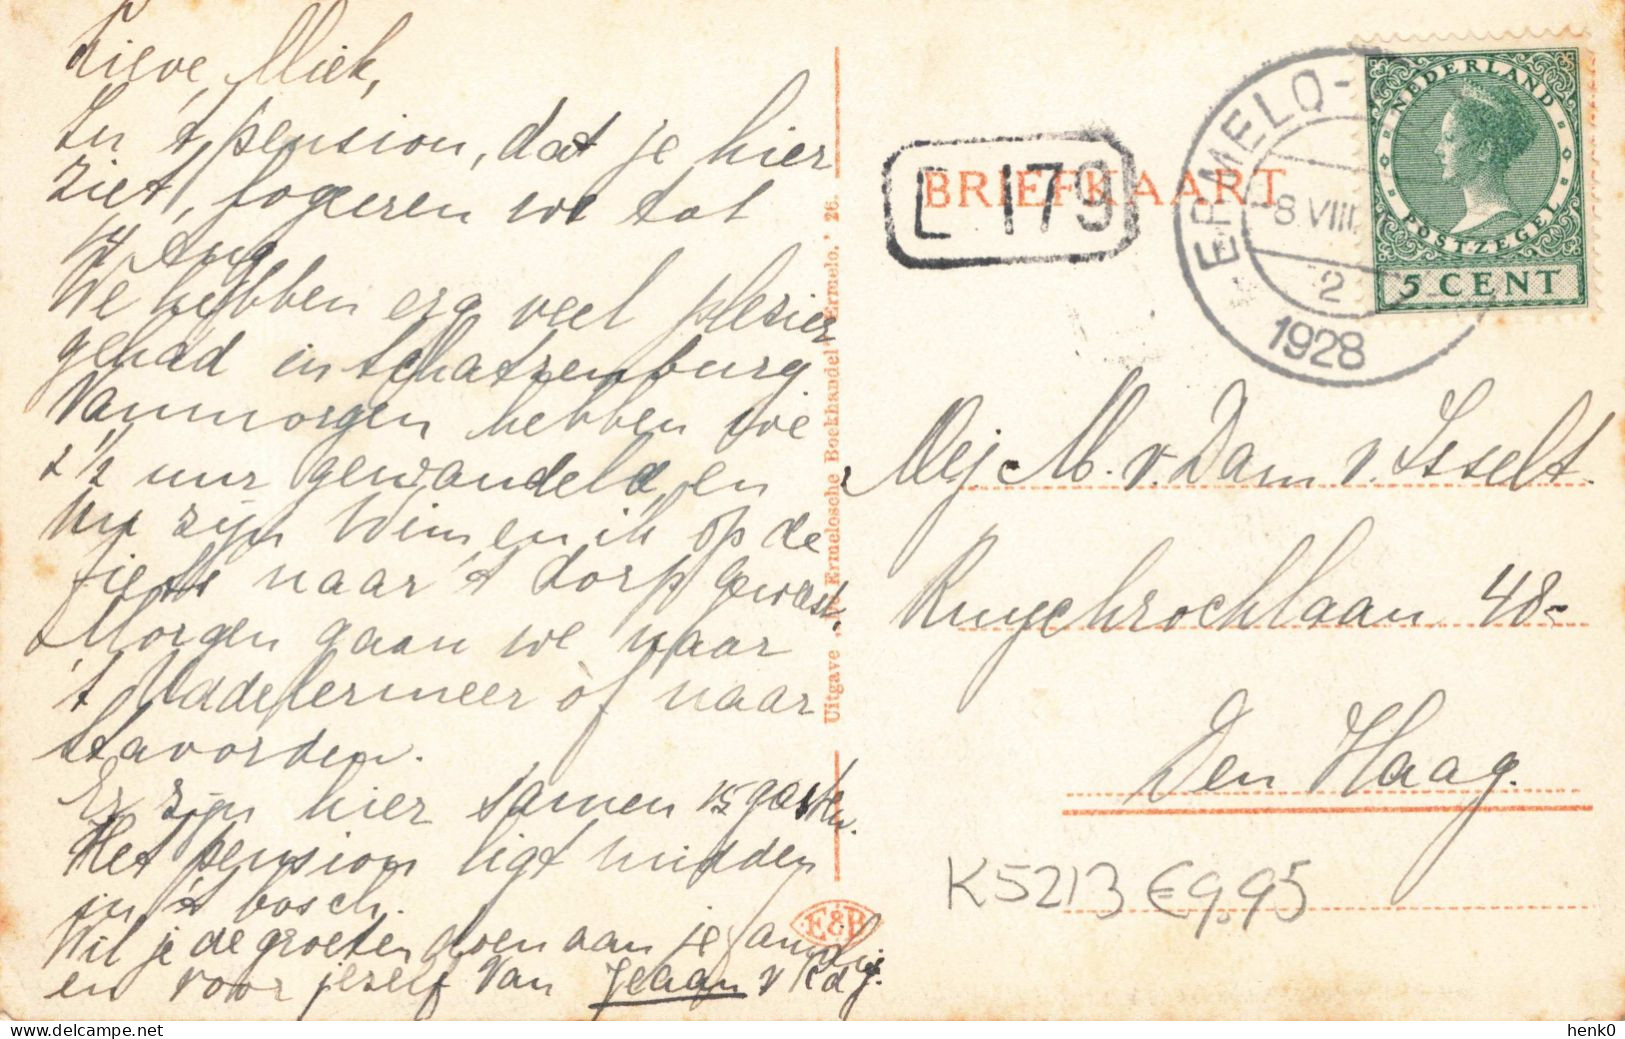 Lieve Miek,
In 't pension, dat je hier
ziet, logeeren we tot
14 Aug
We hebben erg veel plezier
gehad in Schatzenburg
Vanmorgen hebben we
2 1/2 uur gewandeld, en
nu zijn Wim en ik op de
fiets naar 't dorp geweest.
Morgen gaan we naar
't Uddelermeer of naar
Stavorden.
Er zijn hier samen 15 gasten.
Het pension ligt midden
in 't bosch.
Wil je de groeten doen aan je familie
en voor jezelf van
Uitgave Ermelosche Boekhandel Ermelo. '26.
E&B
BRIEFKAART
L 179
ERMELO-
8 VIII
2
1928
NEDERLAND
POSTZEGEL
5 CENT
Mej. M. v. Dam v. Isselt.
Ruychrochlaan 48
Den Haag.
K5213 €9,95
henk0